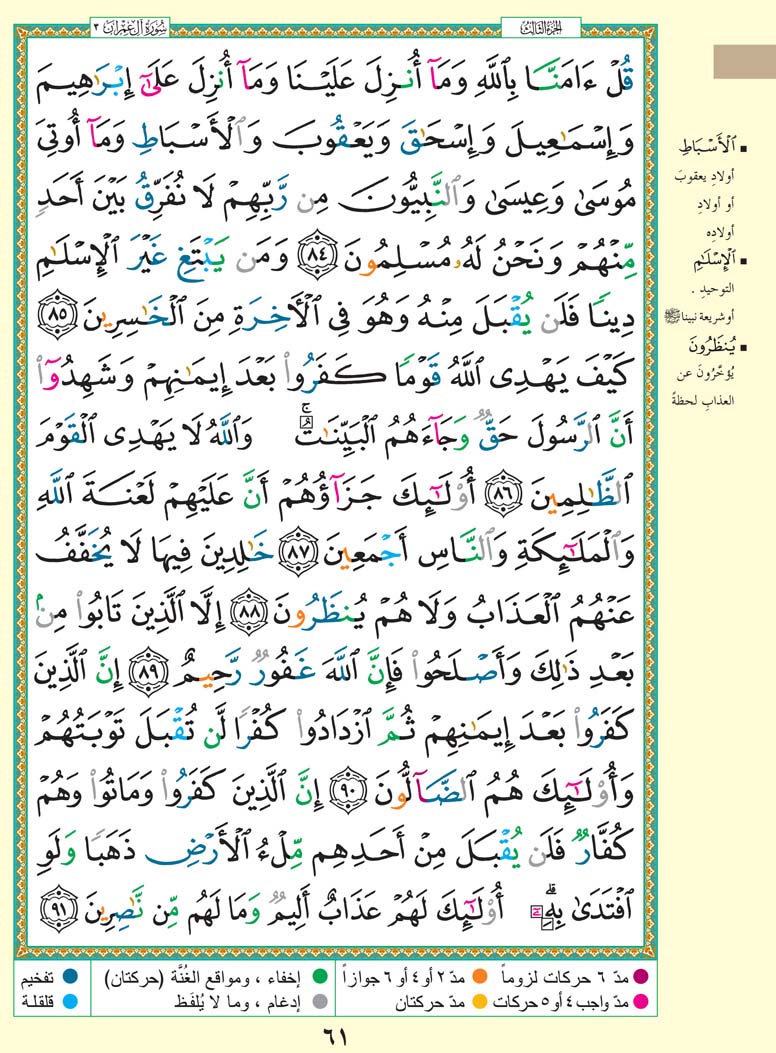 سُورَةُ آلِ عِمْرَانَ ٣
الجُزْءُ الثَّالِثُ
قُلْ ءَامَنَّا بِٱللَّهِ وَمَآ أُنزِلَ عَلَيْنَا وَمَآ أُنزِلَ عَلَىٰٓ إِبْرَٰهِيمَ
وَإِسْمَٰعِيلَ وَإِسْحَٰقَ وَيَعْقُوبَ وَٱلْأَسْبَاطِ وَمَآ أُوتِىَ
مُوسَىٰ وَعِيسَىٰ وَٱلنَّبِيُّونَ مِن رَّبِّهِمْ لَا نُفَرِّقُ بَيْنَ أَحَدٍ
مِّنْهُمْ وَنَحْنُ لَهُۥ مُسْلِمُونَ ٨٤ وَمَن يَبْتَغِ غَيْرَ ٱلْإِسْلَٰمِ
دِينًا فَلَن يُقْبَلَ مِنْهُ وَهُوَ فِى ٱلْأَخِرَةِ مِنَ ٱلْخَٰسِرِينَ ٨٥
كَيْفَ يَهْدِى ٱللَّهُ قَوْمًا كَفَرُوا۟ بَعْدَ إِيمَٰنِهِمْ وَشَهِدُوٓا۟
أَنَّ ٱلرَّسُولَ حَقٌّ وَجَآءَهُمُ ٱلْبَيِّنَٰتُ ۚ وَٱللَّهُ لَا يَهْدِى ٱلْقَوْمَ
ٱلظَّٰلِمِينَ ٨٦ أُو۟لَٰٓئِكَ جَزَآؤُهُمْ أَنَّ عَلَيْهِمْ لَعْنَةَ ٱللَّهِ
وَٱلْمَلَٰٓئِكَةِ وَٱلنَّاسِ أَجْمَعِينَ ٨٧ خَٰلِدِينَ فِيهَا لَا يُخَفَّفُ
عَنْهُمُ ٱلْعَذَابُ وَلَا هُمْ يُنظَرُونَ ٨٨ إِلَّا ٱلَّذِينَ تَابُوا۟ مِنۢ
بَعْدِ ذَٰلِكَ وَأَصْلَحُوا۟ فَإِنَّ ٱللَّهَ غَفُورٌ رَّحِيمٌ ٨٩ إِنَّ ٱلَّذِينَ
كَفَرُوا۟ بَعْدَ إِيمَٰنِهِمْ ثُمَّ ٱزْدَادُوا۟ كُفْرًا لَّن تُقْبَلَ تَوْبَتُهُمْ
وَأُو۟لَٰٓئِكَ هُمُ ٱلضَّآلُّونَ ٩٠ إِنَّ ٱلَّذِينَ كَفَرُوا۟ وَمَاتُوا۟ وَهُمْ
كُفَّارٌ فَلَن يُقْبَلَ مِنْ أَحَدِهِم مِّلْءُ ٱلْأَرْضِ ذَهَبًا وَلَوِ
ٱفْتَدَىٰ بِهِۦٓ ۗ أُو۟لَٰٓئِكَ لَهُمْ عَذَابٌ أَلِيمٌ وَمَا لَهُم مِّن نَّٰصِرِينَ ٩١
▪ ٱلْأَسْبَاطِ
أولادِ يعقوبَ
أو أولادِ
أولادِه
▪ ٱلْإِسْلَٰمِ
التوحيدِ .
أو شريعة نبينا ﷺ
▪ يُنظَرُونَ
يُؤخَّرُونَ عن
العذابِ لحظةً
مدّ ٦ حركات لزوماً
مدّ ٢ أو ٤ أو ٦ جوازاً
إخفاء ، ومواقع الغُنَّة (حركتان)
تفخيم
مدّ واجب ٤ أو ٥ حركات
مدّ حركتان
إدغام ، وما لا يُلفَظ
قلقلة
٦١